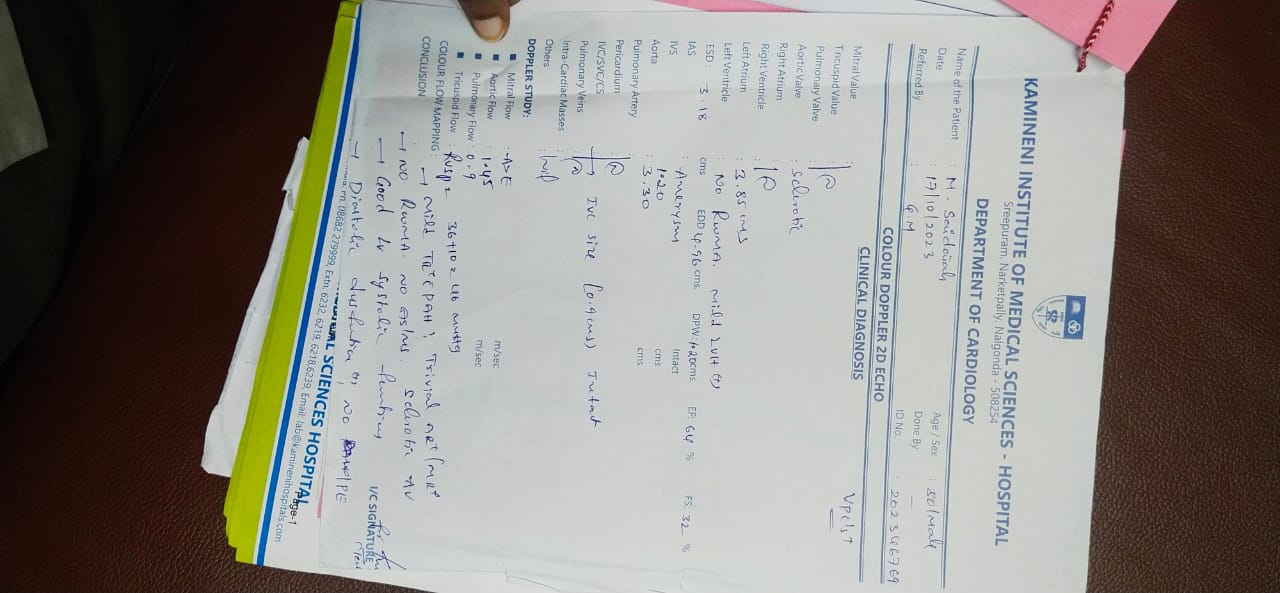 KAMINENI INSTITUTE OF MEDICAL SCIENCES - HOSPITAL
Sreepuram, Narketpally, Nalgonda - 508254
DEPARTMENT OF CARDIOLOGY
Name of the Patient : M. Saidaiah Age / Sex : 50/Male
Date : 17/10/2023 Done By : —
Referred By : GM ID No. :
COLOUR DOPPLER 2D ECHO
CLINICAL DIAGNOSIS
Mitral Value :
Tricuspid Value
Pulmonary Valve
Aortic Valve : sclerotic
Right Atrium
Right Ventricle :
Left Atrium : 3.85 cms
Left Ventricle : No RWMA. mild LVH (+)
ESD : 3.18 cms EDD 4.96 cms. DPW: 1.20 cms. EF: 64 % FS: 32 %
IAS : Aneurysm Intact
IVS 1.20 cms
Aorta : 3.30 cms
Pulmonary Artery
Pericardium
IVC/SVC/CS IVC size (0.9 cms) Intact
Pulmonary Veins
Intra-Cardiac Masses
Others
DOPPLER STUDY:
■ Mitral Flow : A>E
■ Aortic Flow : 1.45 m/sec
■ Pulmonary Flow : 0.9 m/sec
■ Tricuspid Flow : RVSP = 36+10 = 46 mmHg
COLOUR FLOW MAPPING : → Mild TR+ PAH; Trivial AR+/MR+
CONCLUSION : → No RWMA. No AS/MS. Sclerotic AV
→ Good LV systolic function
→ Diastolic dysfunction (+), No PE
I/C SIGNATURE
SCIENCES HOSPITAL
Page-1
Ph. 08682 279999, Extn. 6232, 6219, 6218,6239, Email: lab@kaminenihospitals.com